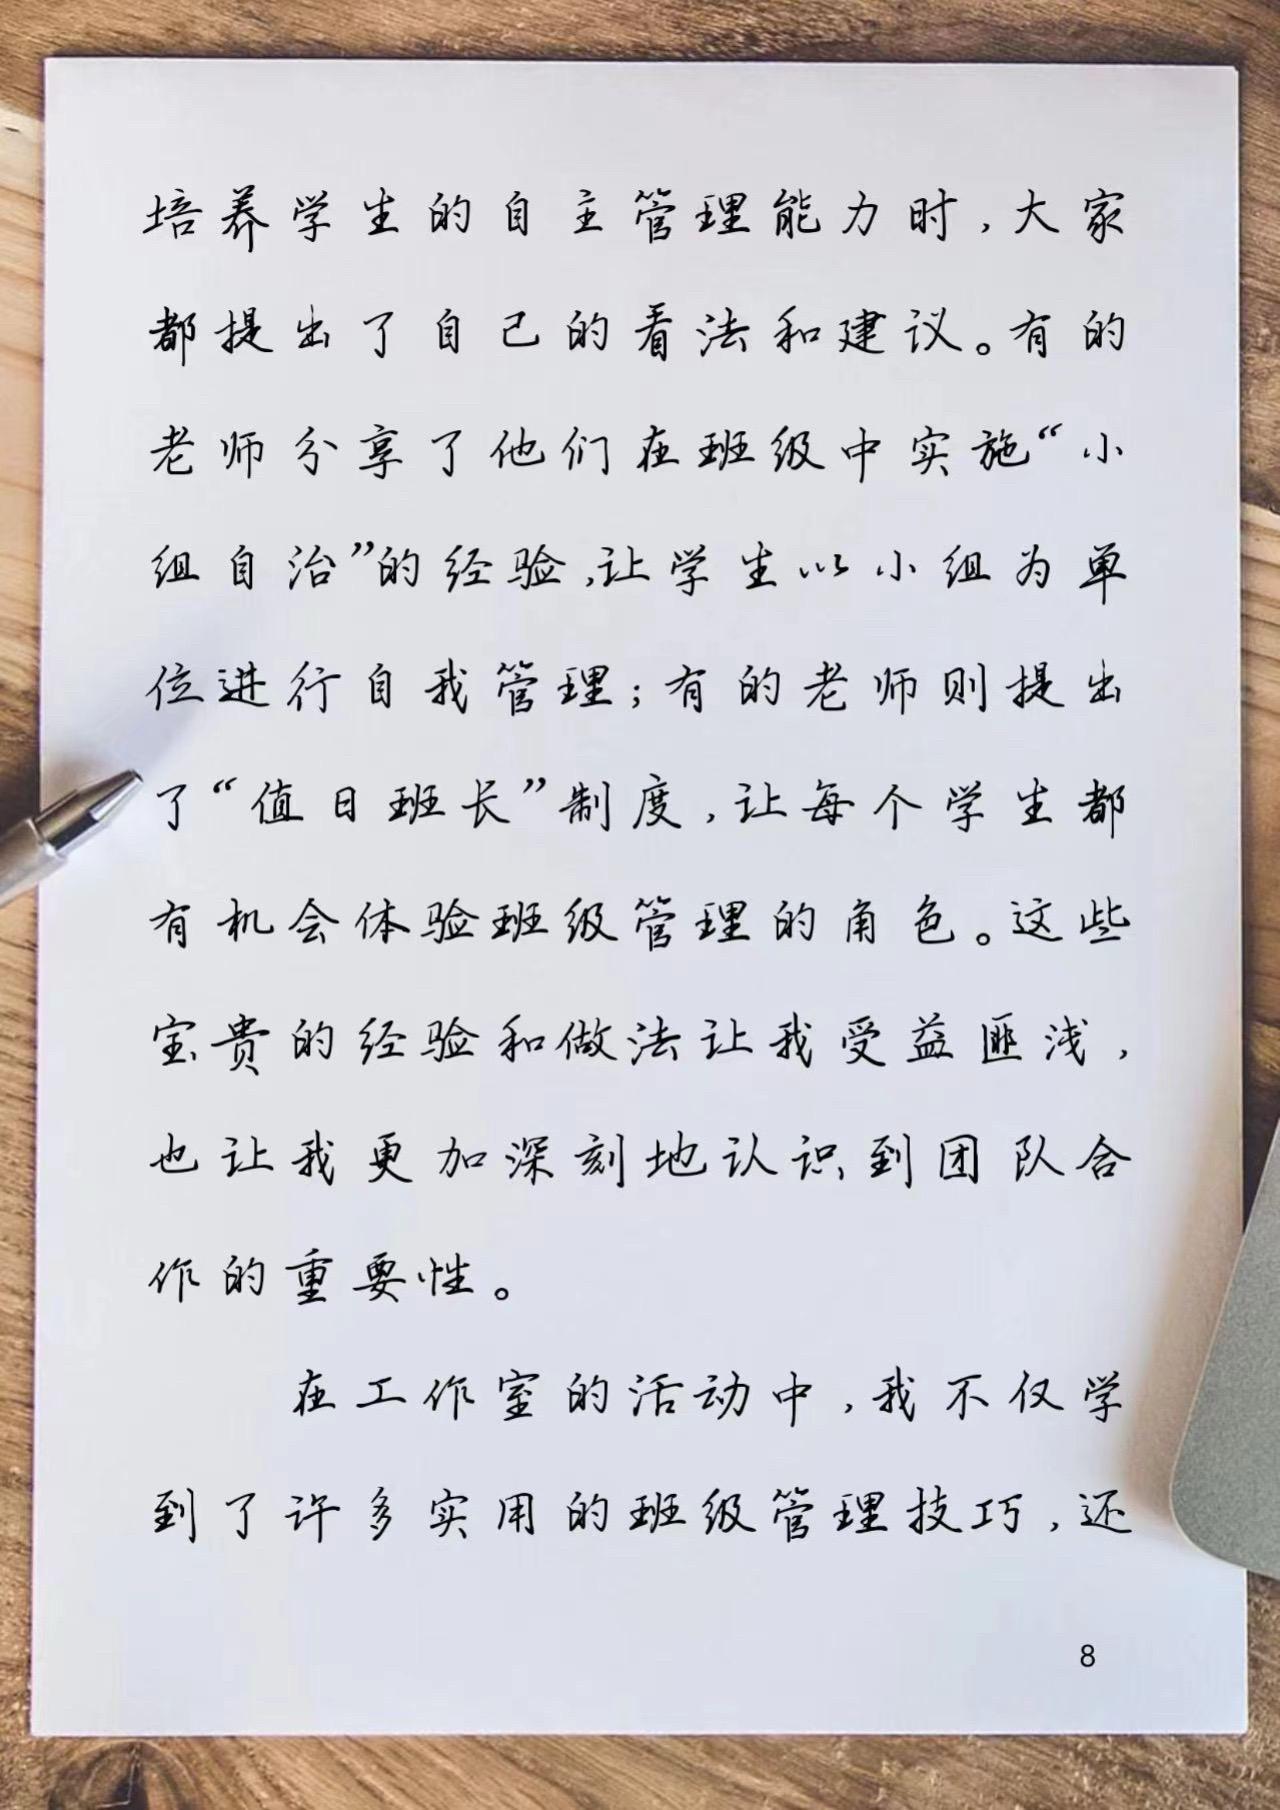 培养学生的自主管理能力时,大家
都提出了自己的看法和建议。有的
老师分享了他们在班级中实施“小
组自治”的经验,让学生以小组为单
位进行自我管理;有的老师则提出
了“值日班长”制度,让每个学生都
有机会体验班级管理的角色。这些
宝贵的经验和做法让我受益匪浅,
也让我更加深刻地认识到团队合
作的重要性。
在工作室的活动中,我不仅学
到了许多实用的班级管理技巧,还
8